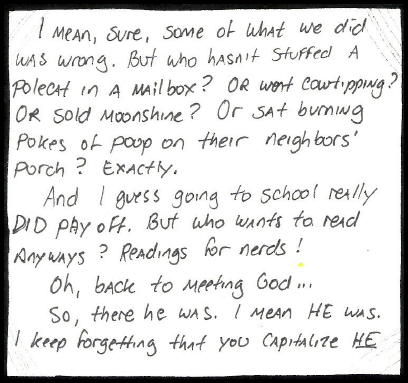 I MEAN, SURE, SOME of WHAT WE did
WAS WRONG. BUT WHO HASN'T STUFFED A
POLECAT IN A MAILBOX? OR WENT COWTIPPING?
OR SOLD MOONSHINE? Or SAT BURNING
POKES OF POOP ON THEIR NEIGHBORS'
PORCH? EXACTLY.
And I guess going to school really
DID PAY OFF. BUT WHO WANTS to READ
ANYWAYS? READINGS for NERDS!
Oh, BACK to MEETING God...
So, there he WAS. I MEAN HE WAS.
I keep forgetting that you CAPITALIZE HE